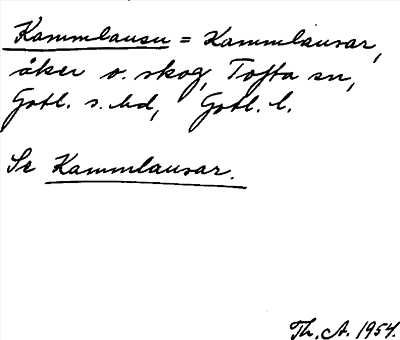 Kammlausu = Kammlausar,
åker o. skog, Tofta sn,
Gotl. s. hd, Gotl. l.
Se Kammlausar.
Th. A. 1954.